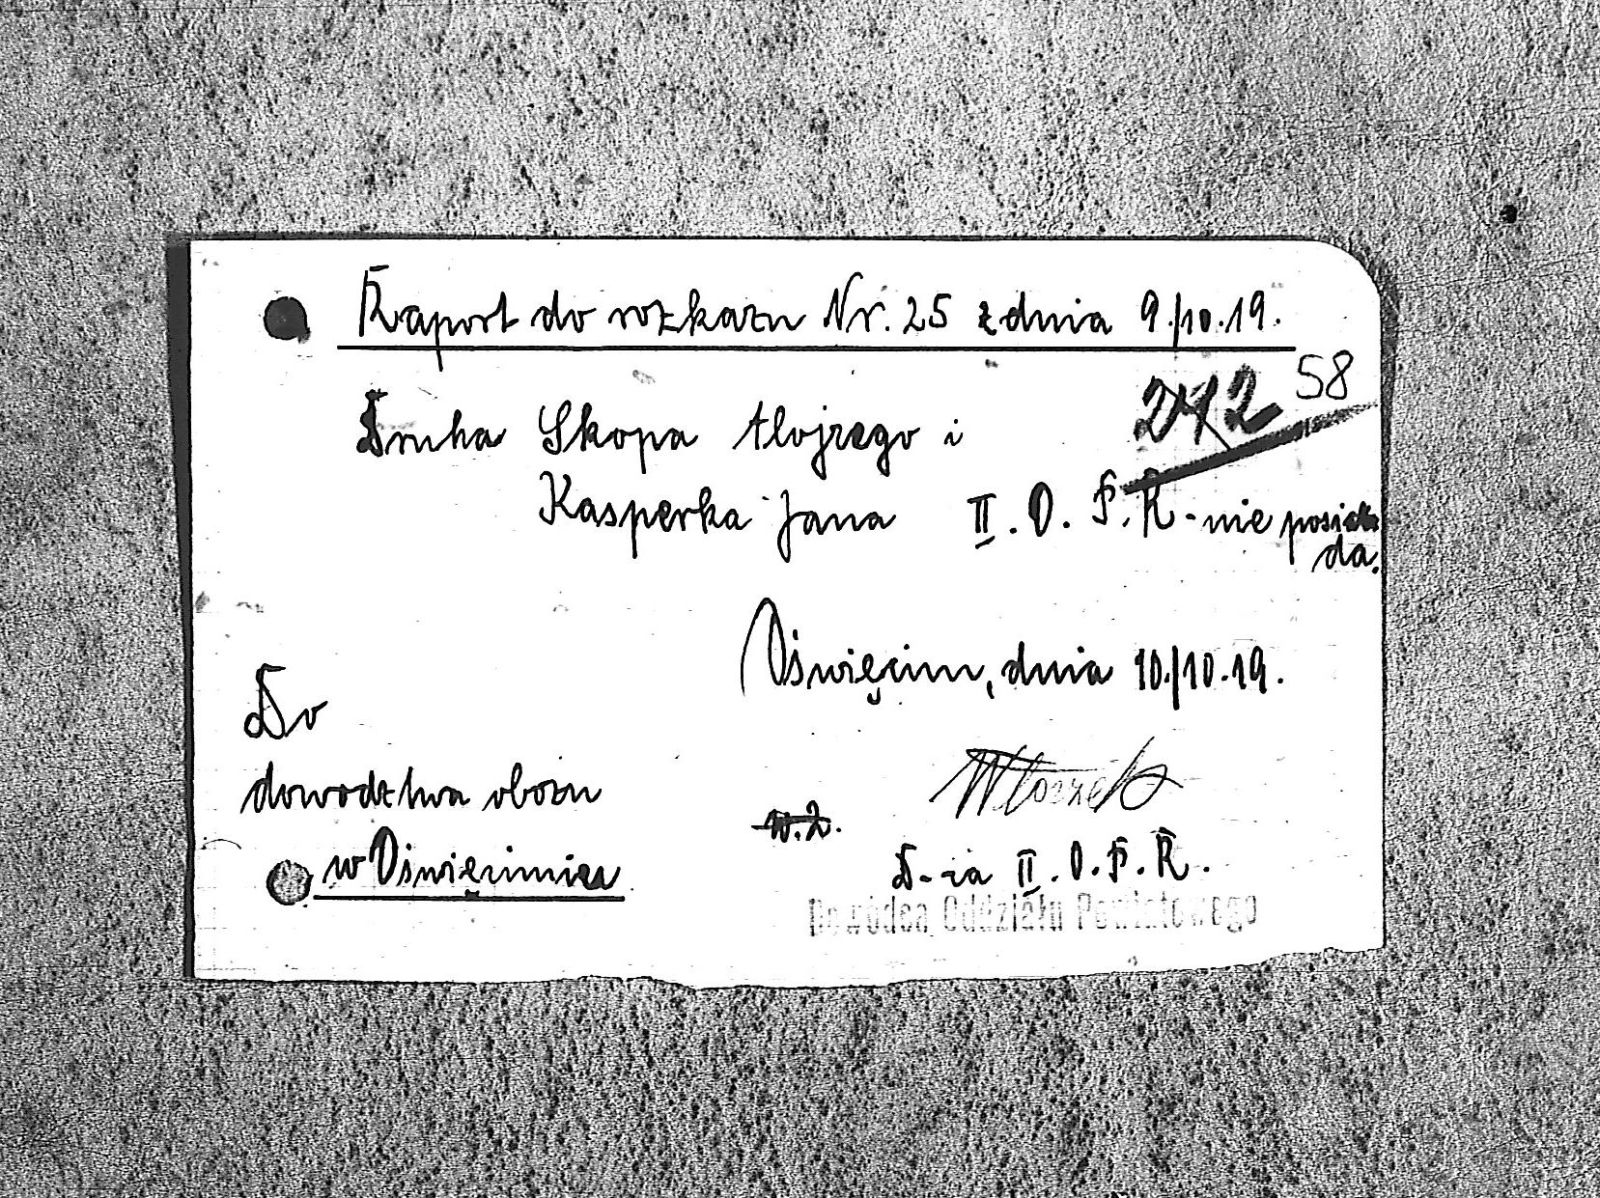 Raport do rozkazu Nr. 25 z dnia 9./10.19.
58
272
Druha Skopa Alojzego i
Kasperka Jana II. O. P. R. nie posia
da.
Oświęcim, dnia 10./10.19.
Do
dowodztwa obozu
w Oświęcimiu
w.z.
D-ca II. O. P. R.
Dowódca Oddziału Powiatowego